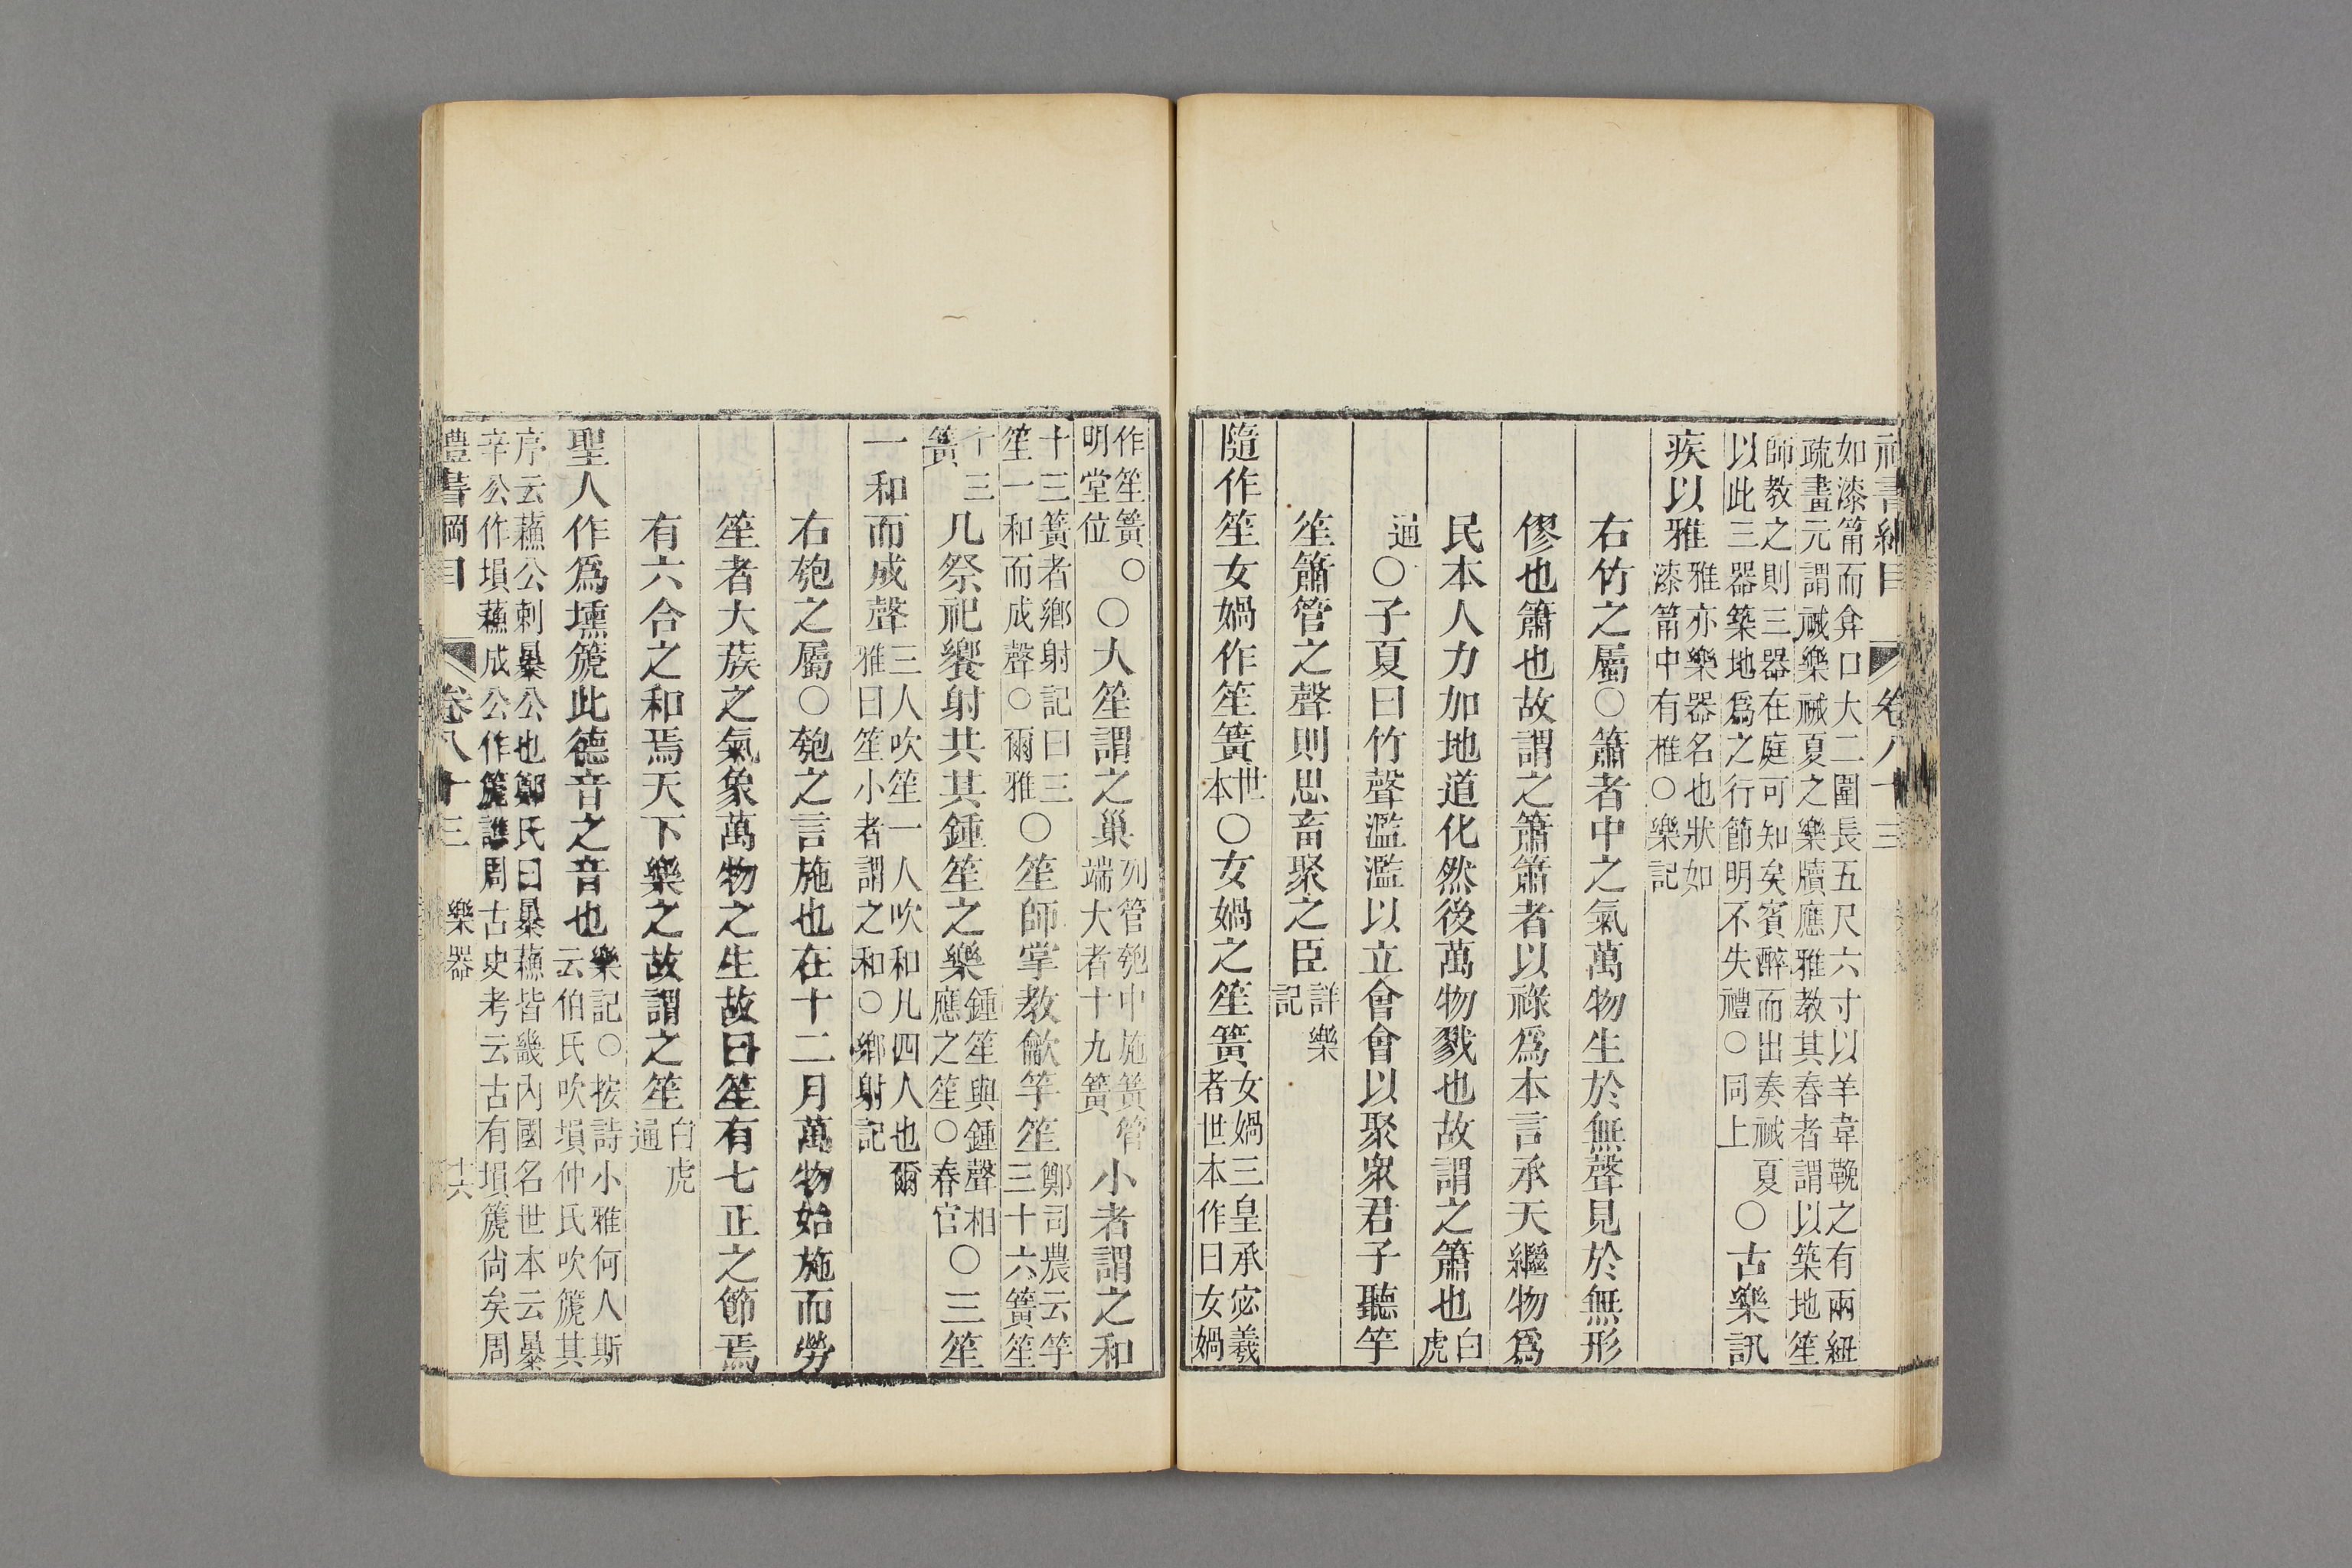 禮書綱目 卷八十三
如漆筩而弇口大二圍長五尺六寸以羊韋鞔之有兩紐
疏畫元謂祴樂祴夏之樂牘應雅教其舂者謂以築地笙
師教之則三器在庭可知矣賓醉而出奏祴夏
以此三器築地爲之行節明不失禮○同上
○古樂訊
疾以雅
雅亦樂器名也狀如
漆筩中有椎○樂記
右竹之屬○簫者中之氣萬物生於無聲見於無形
僇也簫也故謂之簫簫者以祿爲本言承天繼物爲
民本人力加地道化然後萬物戮也故謂之簫也白虎
通○子夏曰竹聲濫濫以立會會以聚衆君子聽竽
笙簫管之聲則思畜聚之臣詳樂記
隨作笙女媧作笙簧世本○女媧之笙簧
女媧三皇承宓羲
者世本作曰女媧
作笙簧○
明堂位
○大笙謂之巢
列管匏中施簧管
端大者十九簧
小者謂之和
十三簧者鄉射記曰三
笙一和而成聲○爾雅
○笙師掌教龡竽笙
鄭司農云竽
三十六簧笙
十三
簧
凡祭祀饗射共其鍾笙之樂
鍾笙與鍾聲相
應之笙○春官
○三笙
一和而成聲
三人吹笙一人吹和凡四人也爾
雅曰笙小者謂之和○鄉射記
右匏之屬○匏之言施也在十二月萬物始施而勞
笙者大蔟之氣象萬物之生故曰笙有七正之節焉
有六合之和焉天下樂之故謂之笙白虎通
聖人作爲壎箎此德音之音也
樂記○按詩小雅何人斯
云伯氏吹塤仲氏吹箎其
序云蘓公刺暴公也鄭氏曰暴蘓皆畿內國名世本云暴
辛公作塤蘓成公作箎譙周古史考云古有塤箎尙矣周
禮書綱目 卷八十三 樂器 共